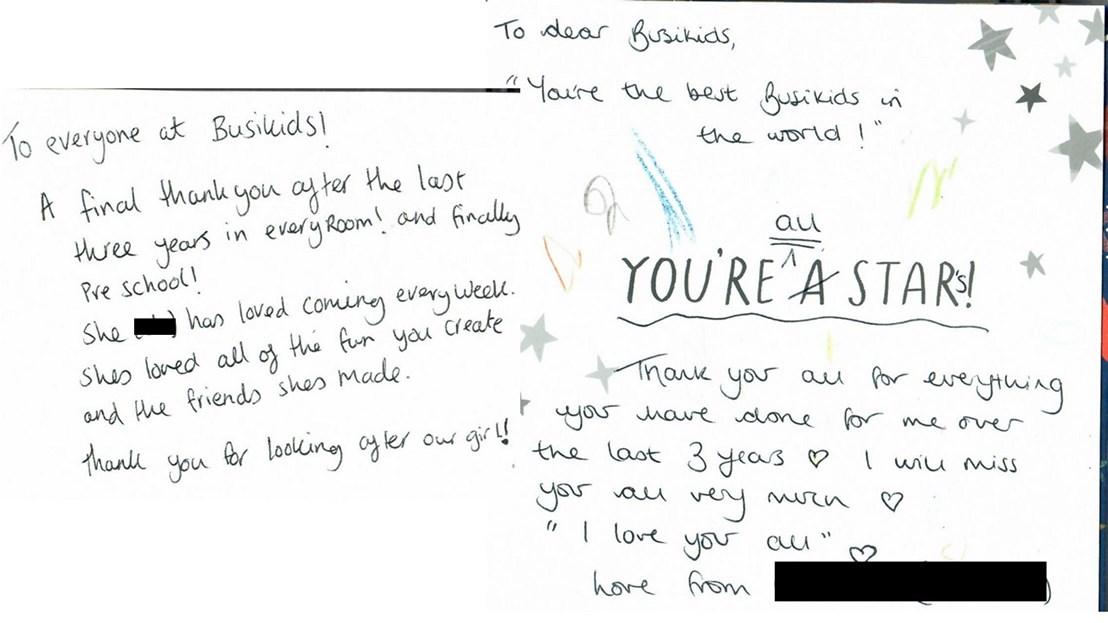 To everyone at Busikids!
A final thankyou after the last
three years in everyRoom! and finally
Pre school!
She () has loved coming everyweek.
shes loved all of the fun you create
and the friends shes made.
thank you for looking after our girl!!
To dear Busikids,
"You're the best Busikids in
the world!"
all
YOU'RE A STAR's!
Thank you all for everything
you have done for me over
the last 3 years ♡ I will miss
you all very much ♡
"I love you all" ♡
love from ()